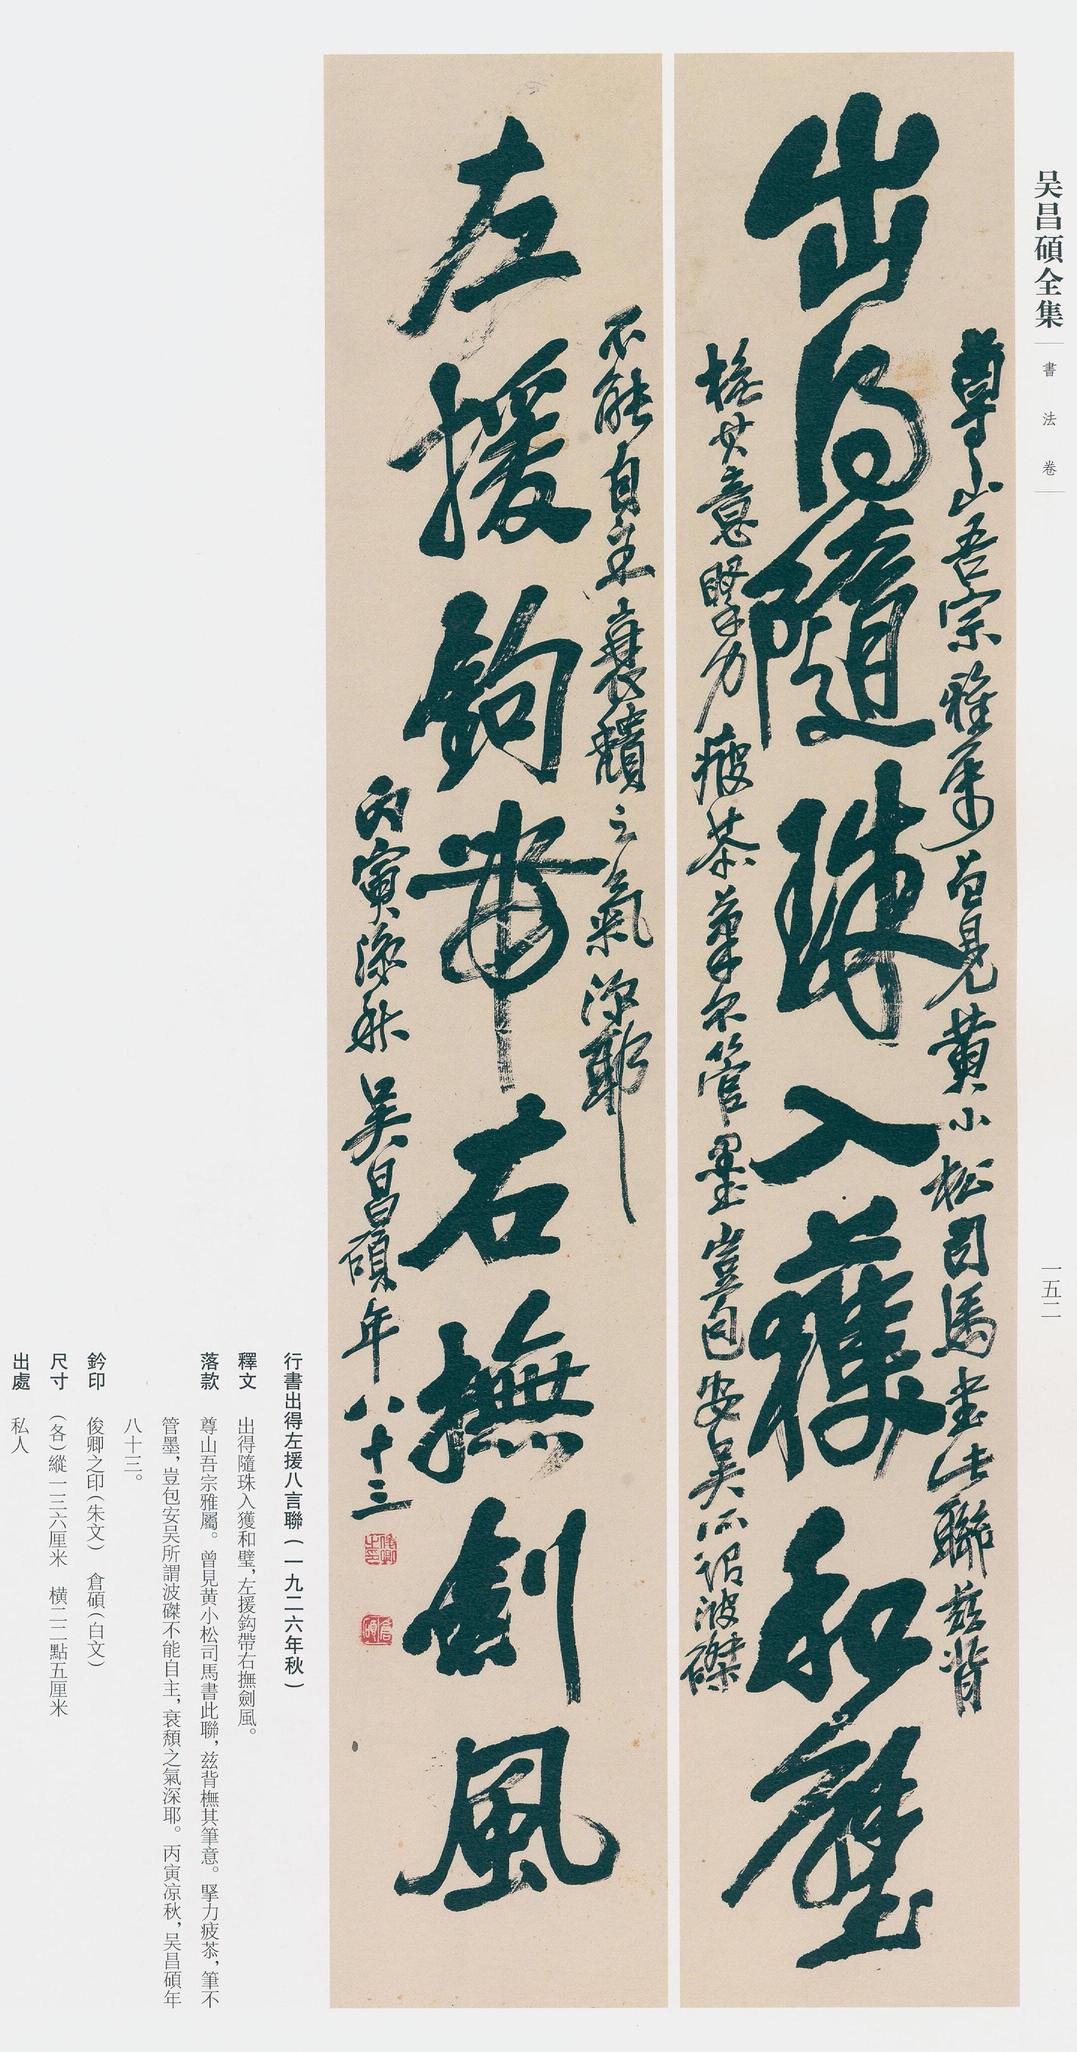 吴昌碩全集
書法卷
一五二
尊山吾宗雅属曾見黄小松司馬書此聯兹背
出得隨珠入獲和璧
橅其意掔力疲苶筆不管墨豈包安吴所謂波磔
不能自主衰頹之氣深耶
左援鉤帶右撫劍風
丙寅凉秋吴昌碩年八十三
俊卿之印
倉碩
行書出得左援八言聯(一九二六年秋)
釋文 出得隨珠入獲和璧,左援鈎帶右撫劍風。
落款 尊山吾宗雅屬。曾見黄小松司馬書此聯,兹背橅其筆意。掔力疲苶,筆不
管墨,豈包安吴所謂波磔不能自主,衰頹之氣深耶。丙寅凉秋,吴昌碩年
八十三。
鈐印 俊卿之印(朱文) 倉碩(白文)
尺寸 (各)縱一三六厘米 横二二點五厘米
出處 私人